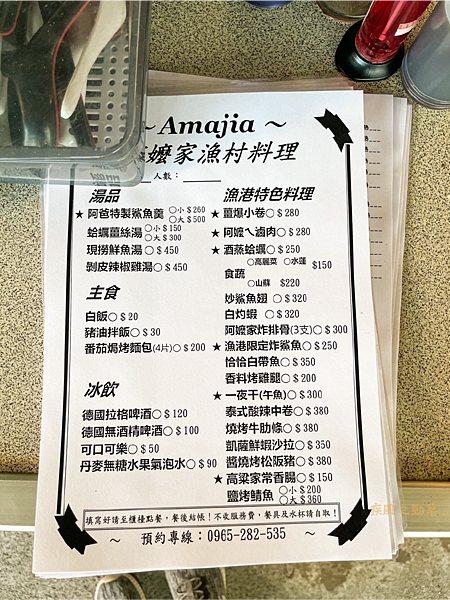 ~ Amajia ~
嬤家漁村料理
人數：
湯品
★ 阿爸特製鯊魚羹 ○小 $260 ○大 $500
蛤蠣薑絲湯 ○小 $150 ○大 $300
現撈鮮魚湯 ○ $450
剝皮辣椒雞湯 ○ $450
主食
白飯○ $20
豬油拌飯○ $30
番茄焗烤麵包(4片)○ $200
冰飲
德國拉格啤酒○ $120
德國無酒精啤酒○ $100
可口可樂○ $50
丹麥無糖水果氣泡水○ $90
漁港特色料理
★ 薑爆小卷○ $280
★ 阿嬤ㄟ滷肉○ $280
★ 酒蒸蛤蠣○ $250
時蔬 ○高麗菜 ○水蓮 $150
○山蘇 $220
炒鯊魚翅 ○ $320
白灼蝦 ○ $320
阿嬤家炸排骨(3支)○ $300
★ 漁港限定炸鯊魚○ $250
恰恰白帶魚○ $350
香料烤雞腿○ $200
★ 一夜干(午魚)○ $300
泰式酸辣中卷○ $380
燒烤牛肋條○ $380
凱薩鮮蝦沙拉○ $350
醬燒烤松阪豬○ $380
★ 高粱家常香腸○ $150
鹽烤鯖魚 ○小 $200 ○大 $360
填寫好請至櫃檯點餐，餐後結帳！不收服務費，餐具及水杯請自取！
~ 預約專線：0965-282-535 ~